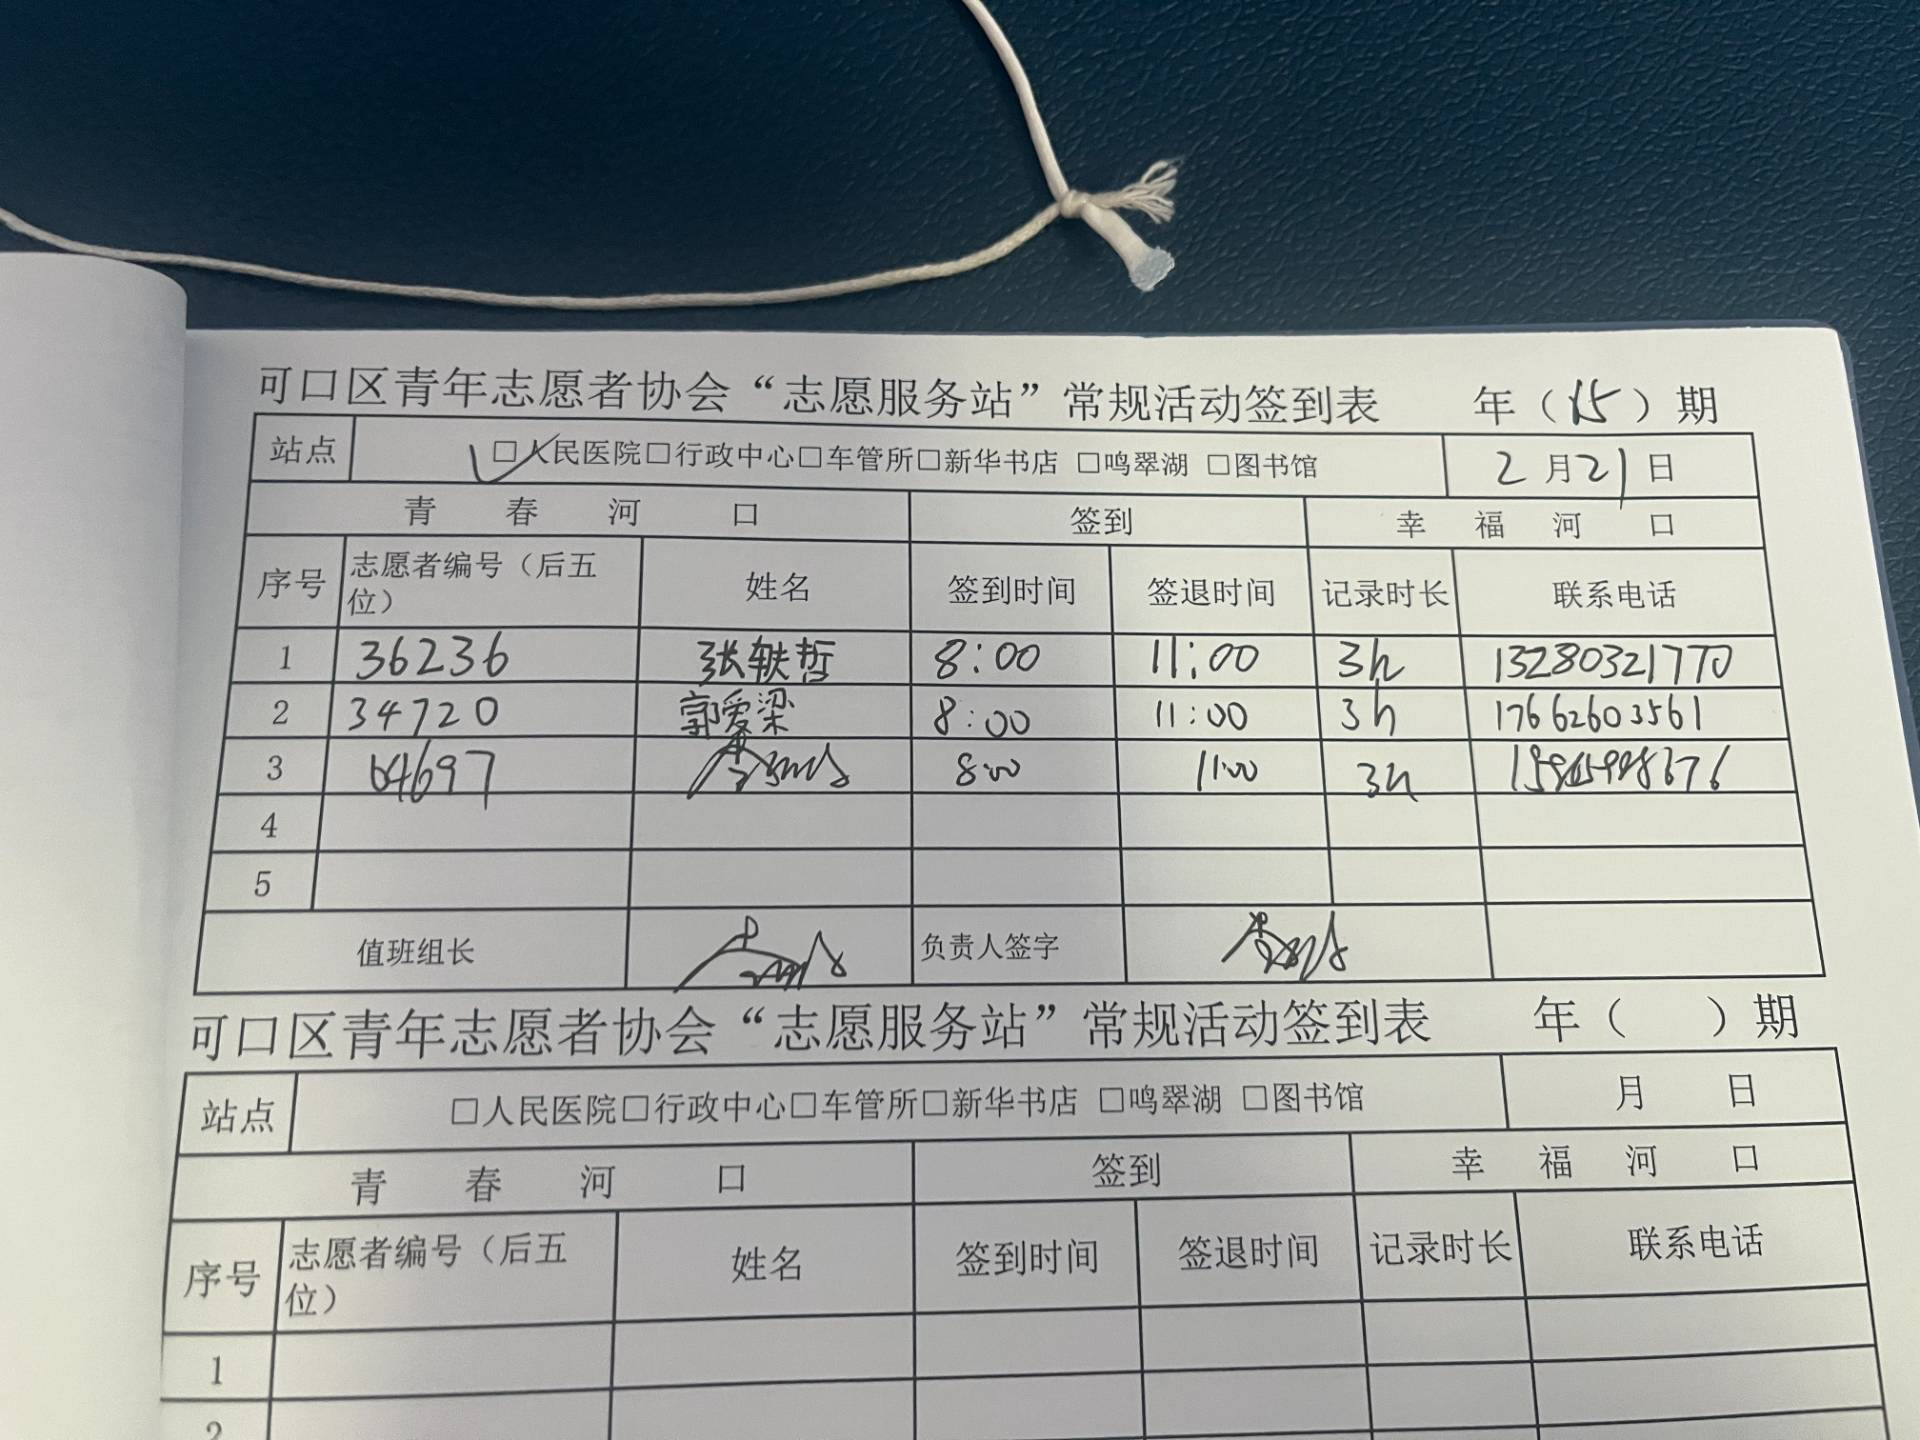 可口区青年志愿者协会“志愿服务站”常规活动签到表 年（15）期
站点 □人民医院□行政中心□车管所□新华书店 □鸣翠湖 □图书馆 2月21日
青春河口 签到 幸福河口
序号 志愿者编号（后五位） 姓名 签到时间 签退时间 记录时长 联系电话
1 36236 张轶哲 8:00 11:00 3h 13280321770
2 34720 郭爱梁 8:00 11:00 3h 17662603561
3 64697 8:00 11:00 3h
4
5
值班组长 负责人签字
可口区青年志愿者协会“志愿服务站”常规活动签到表 年（ ）期
站点 □人民医院□行政中心□车管所□新华书店 □鸣翠湖 □图书馆 月 日
青春河口 签到 幸福河口
序号 志愿者编号（后五位） 姓名 签到时间 签退时间 记录时长 联系电话
1
2